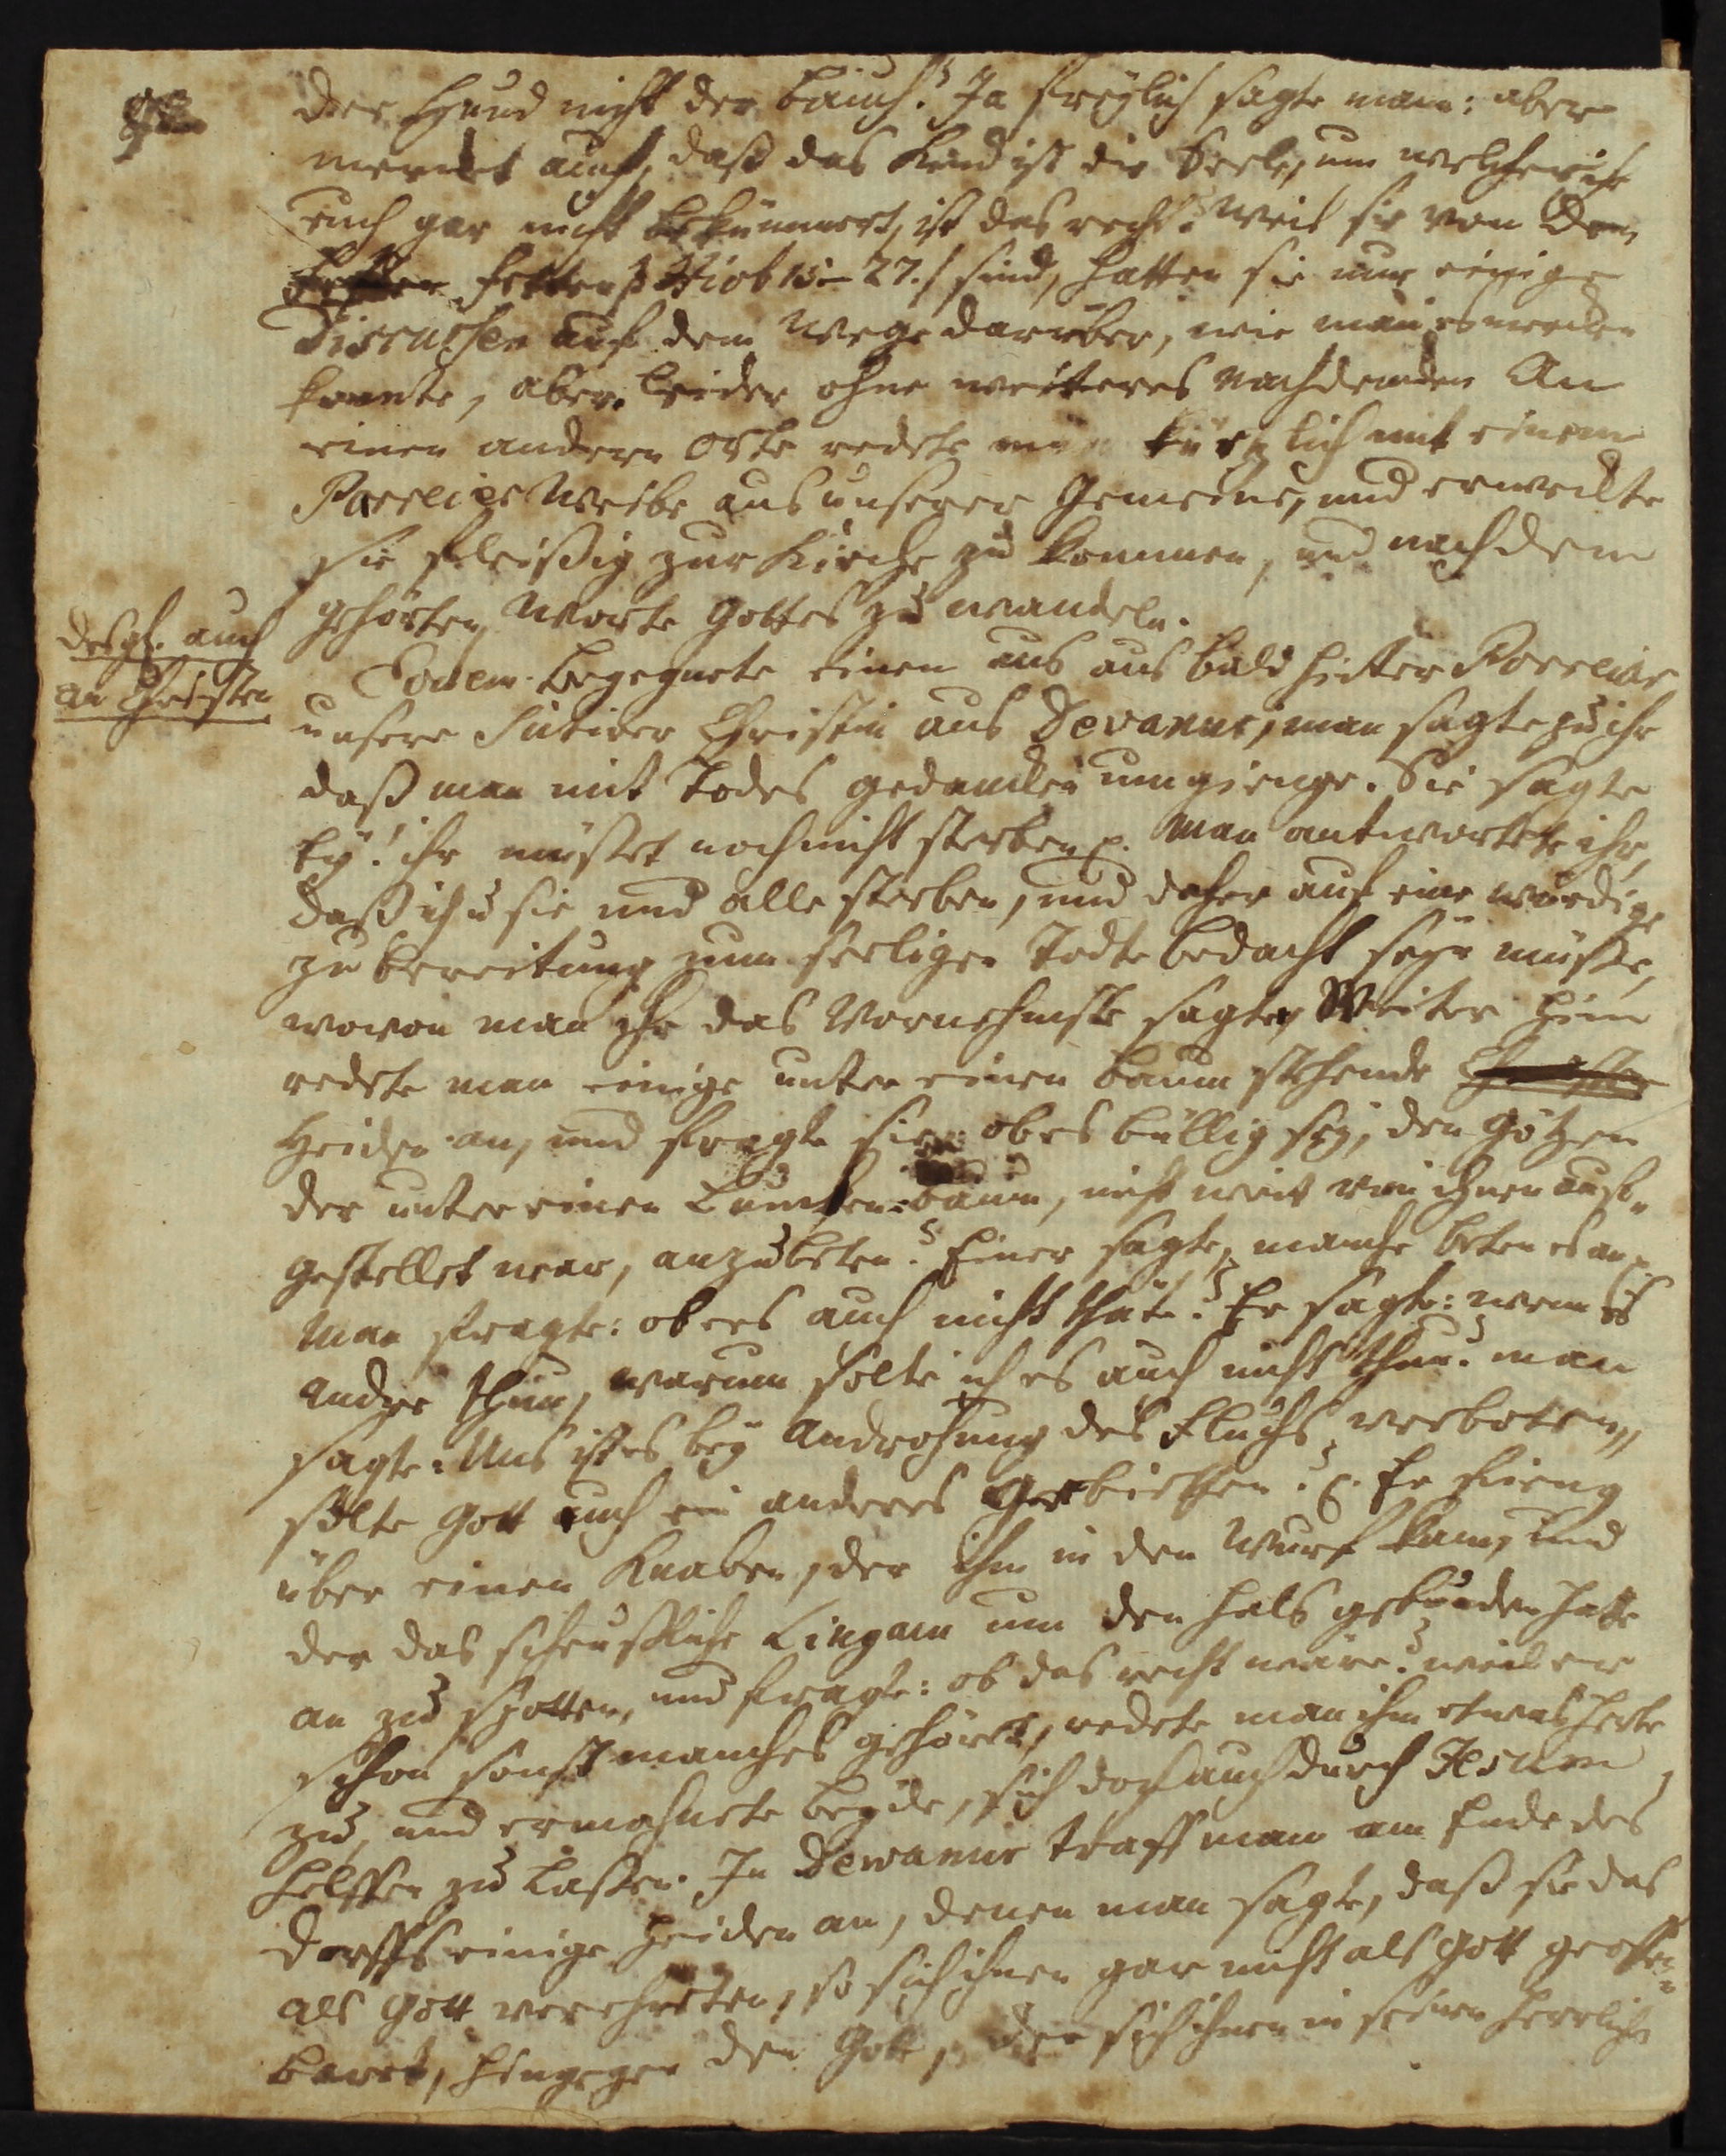 der Hund nicht der Bauch? Ja freylich sagte man: aber
mercket auch, daß das Kind ist die Seele, um welche ihr
euch gar nicht bekümmert, ist das recht? Weil sie von den
fetten Hiob 15-27. sind, hatten sie nur einige
Discursen auf dem Wege darüber, wie man es
konnte, aber leider ohne weiteres nachdencken An
einen andern Orte redete man kürzlich mit einem
Porreiar Weibe aus unserer Gemeine, und erweckte
sie fleißig zur Kirche zu kommen, und nach dem
gehörten Worte Gottes zu wandeln.
desgl. auch
an Christen
Eodem begegnete einen uns aus bald hinter Porreiar
unsere Sutirer Christin aus Devanur, man sagte zu ihr
daß man mit Todes gedancken umgienge. Sie sagte
Ey! ihr müßet noch nicht sterben p. Man antwortete ihr,
daß ich u sie und alle sterben, und daher auf eine würdige
zubereitung zum seeligen Todte bedacht seyn müßte,
wovon man ihr das Vornehmste sagte, Weiter hin
redete man einige unter einen baum stehende Christen
Heiden an, und fragte sie: ob es billig sey, den Götzen
der unter einen baum, nicht weit von ihnen auf-
gestellet war, anzubeten? Einer sagte, manche beten es an p.
Man fragte: ob er es auch nicht thäte? Er sagte: wenn es
andre thun, warum solte ich es auch nicht thun? man
sagte: Uns ist es bey Androhung des Fluchs verboten,
solte Gott euch ein anderes gebiethen? p. Er fieng
über einen Knaben, der ihm in den Wurf kam, und
der das scheusliche Lingam um den Hals gebunden hatte
an zu spotten, und fragte: ob das recht wäre? weil er
schon sonst manches gehört, redete man ihm etwas harte
zu, und ermahnete beyde, sich doch auch durch Jesum
helffen zu laßen. In Dewanur traff man am Ende des
Dorffs einige Heiden an, denen man sagte, daß sie das
als Gott verehreten, so sich ihnen gar nicht als Gott geoffen-
baret, hingegen den Gott, der sich ihnen in seinen herrlichen